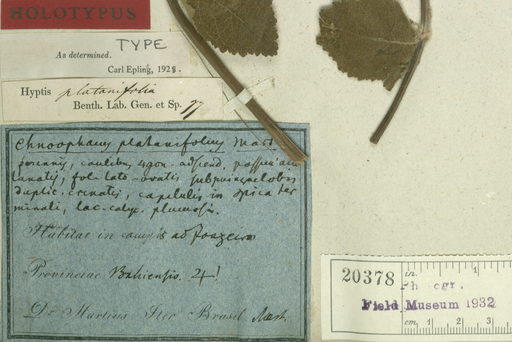 HOLOTYPUS
TYPE
As determined.
Carl Epling, 1928.
Hyptis platanifolia
Benth. Lab. Gen. et Sp. 77
Chnoophacus platanifolius Mart
perennis, caulibus 4gon. adscend.
lanatis, fol. lato-ovatis subquinquelobis
duplic. crenatis, capitulis in spica ter
minali, lac. calyc. plumosis.
Habitat in campis ad Joazeiro
Provinciae Bahiensis. 4!
Dr Martius Iter Brasil Mart.
20378
in.
Ph gr.
Field Museum 1932
cm. 1 2 3